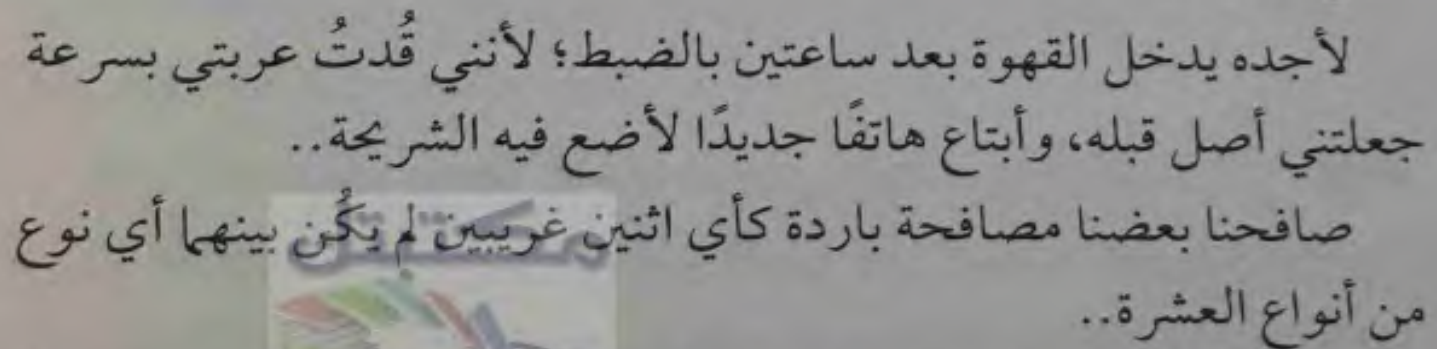 لأجده يدخل القهوة بعد ساعتين بالضبط؛ لأنني قُدتُ عربتي بسرعة
جعلتني أصل قبله، وأبتاع هاتفًا جديدًا لأضع فيه الشريحة..
صافحنا بعضنا مصافحة باردة كأي اثنين غريبين لم يكُن بينهما أي نوع
من أنواع العشرة..